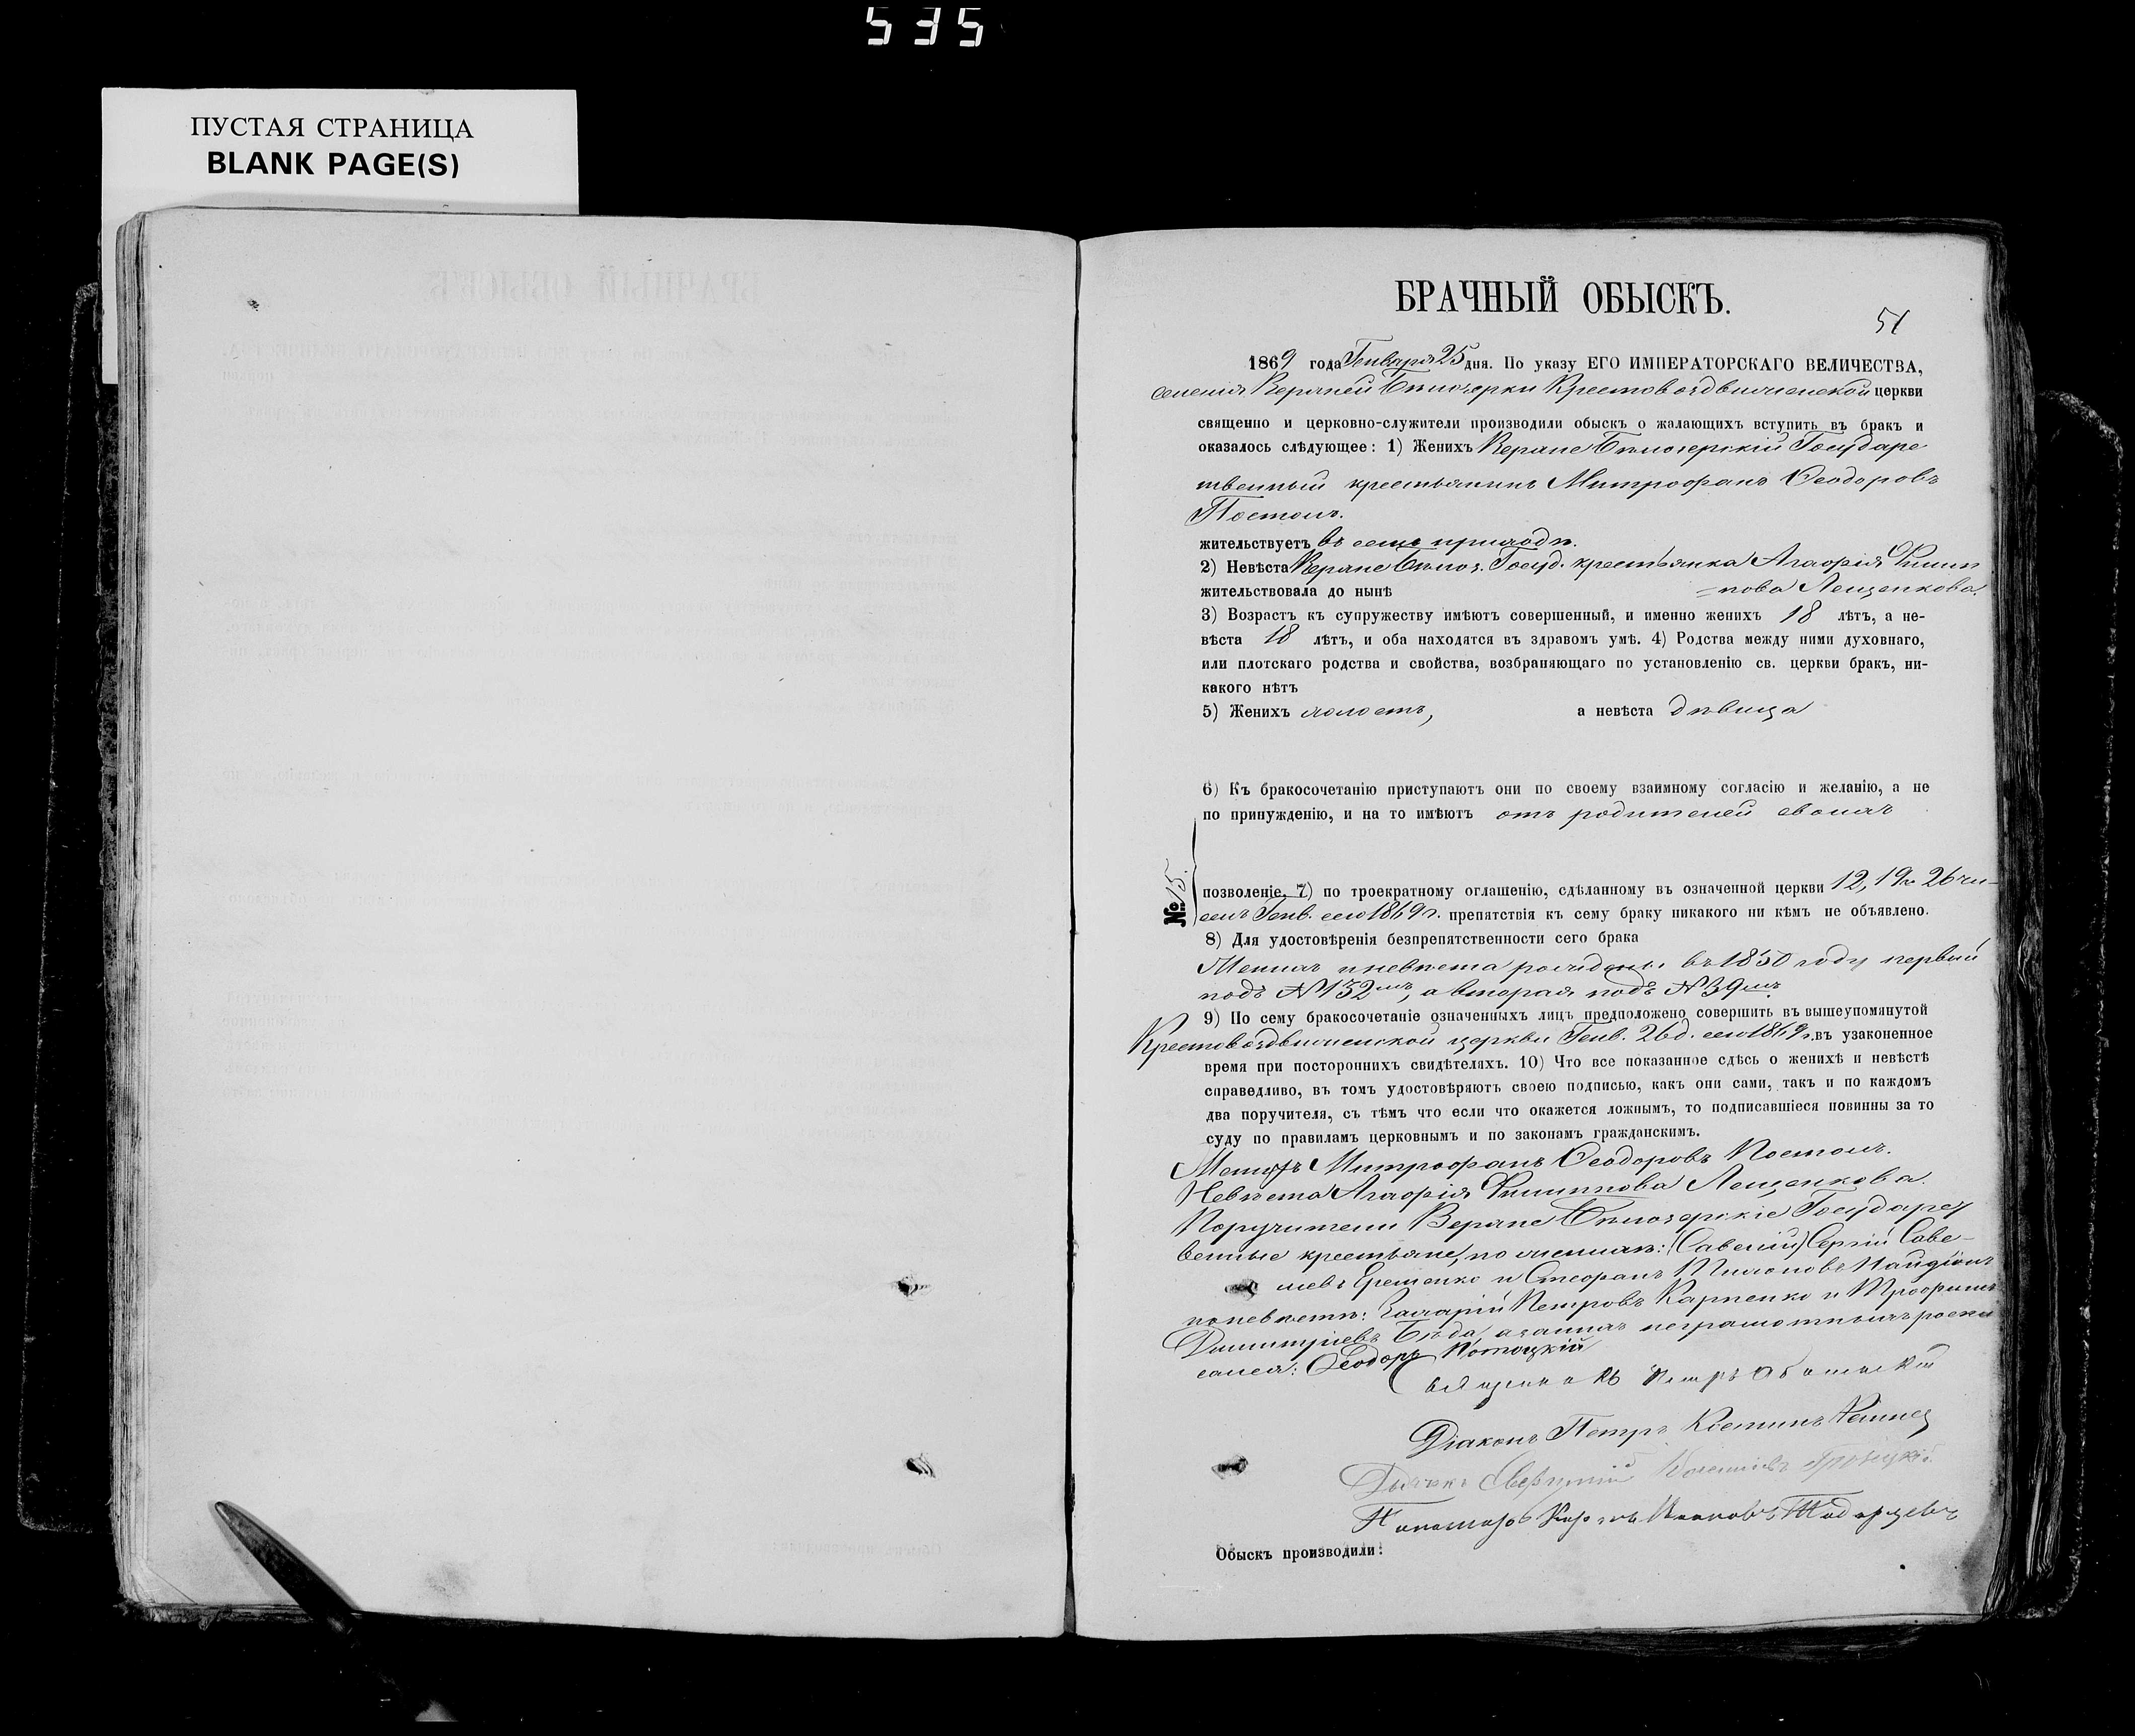 535
ПУСТАЯ СТРАНИЦА
BLANK PAGE(S)
БРАЧНЫЙ ОБЫСКЪ.
51
1869 года Генваря 25 дня. По указу ЕГО ИМПЕРАТОРСКАГО ВЕЛИЧЕСТВА,
селенія Верхней Бѣлозерки Крестовоздвиженской церкви
священно и церковно-служители производили обыскъ о жалающихъ вступить въ бракъ и
оказалось слѣдующее: 1) Женихъ Верхне Бѣлозерскій Государс
твенный крестьянинъ Митрофанъ Ѳеодоровъ
Постолъ.
жительствуетъ въ семъ приходѣ.
2) Невѣста Верхне Бѣлоз. Госуд. крестьянка Агафія Филип
жительствовала до нынѣ =пова Лещенкова.
3) Возрастъ къ супружеству имѣютъ совершенный, и именно женихъ 18 лѣтъ, а не-
вѣста 18 лѣтъ, и оба находятся въ здравомъ умѣ. 4) Родства между ними духовнаго,
или плотскаго родства и свойства, возбраняющаго по установленію св. церкви бракъ, ни-
какого нѣтъ
5) Женихъ холостъ, а невѣста дѣвица
6) Къ бракосочетанію приступаютъ они по своему взаимному согласію и желанію, а не
по принужденію, и на то имѣютъ отъ родителей своихъ
№ 15.
позволеніе. 7) по троекратному оглашенію, сдѣланному въ означенной церкви 12, 19 и 26 чи-
селъ Генв. сего 1869 г. препятствія къ сему браку никакого ни кѣмъ не объявлено.
8) Для удостовѣренія безпрепятственности сего брака
Женихъ и невѣста рождены въ 1850 году первый
подъ № 132мъ, а вторая подъ № 39мъ.
9) По сему бракосочетаніе означенныхъ лицъ предположено совершить въ вышеупомянутой
Крестовоздвиженской церкви Генв. 26 д. сего 1869 г. въ узаконенное
время при постороннихъ свидѣтеляхъ. 10) Что все показанное сдѣсь о женихѣ и невѣстѣ
справедливо, въ томъ удостовѣряютъ своею подписью, какъ они сами, такъ и по каждомъ
два поручителя, съ тѣмъ что если что окажется ложнымъ, то подписавшіеся повинны за то
суду по правиламъ церковнымъ и по законамъ гражданскимъ.
Женихъ Митрофанъ Ѳеодоровъ Постолъ.
Невѣста Агафія Филиппова Лещенкова.
Поручители Верхне Бѣлозерскіе Государст
венные крестьяне, по женихѣ: (Савелій) Сергій Саве-
льевъ Ерешенко и Стефанъ
по невѣстѣ: Захарій Петровъ Карпенко и Трофимъ
Димитріевъ Бѣда, а за нихъ неграмотныхъ роспи
сался: Ѳеодоръ Потоцкій
Священникъ Петръ
Діаконъ Петръ
Дьячекъ
Пономарь Ивановъ
Обыскъ производили: